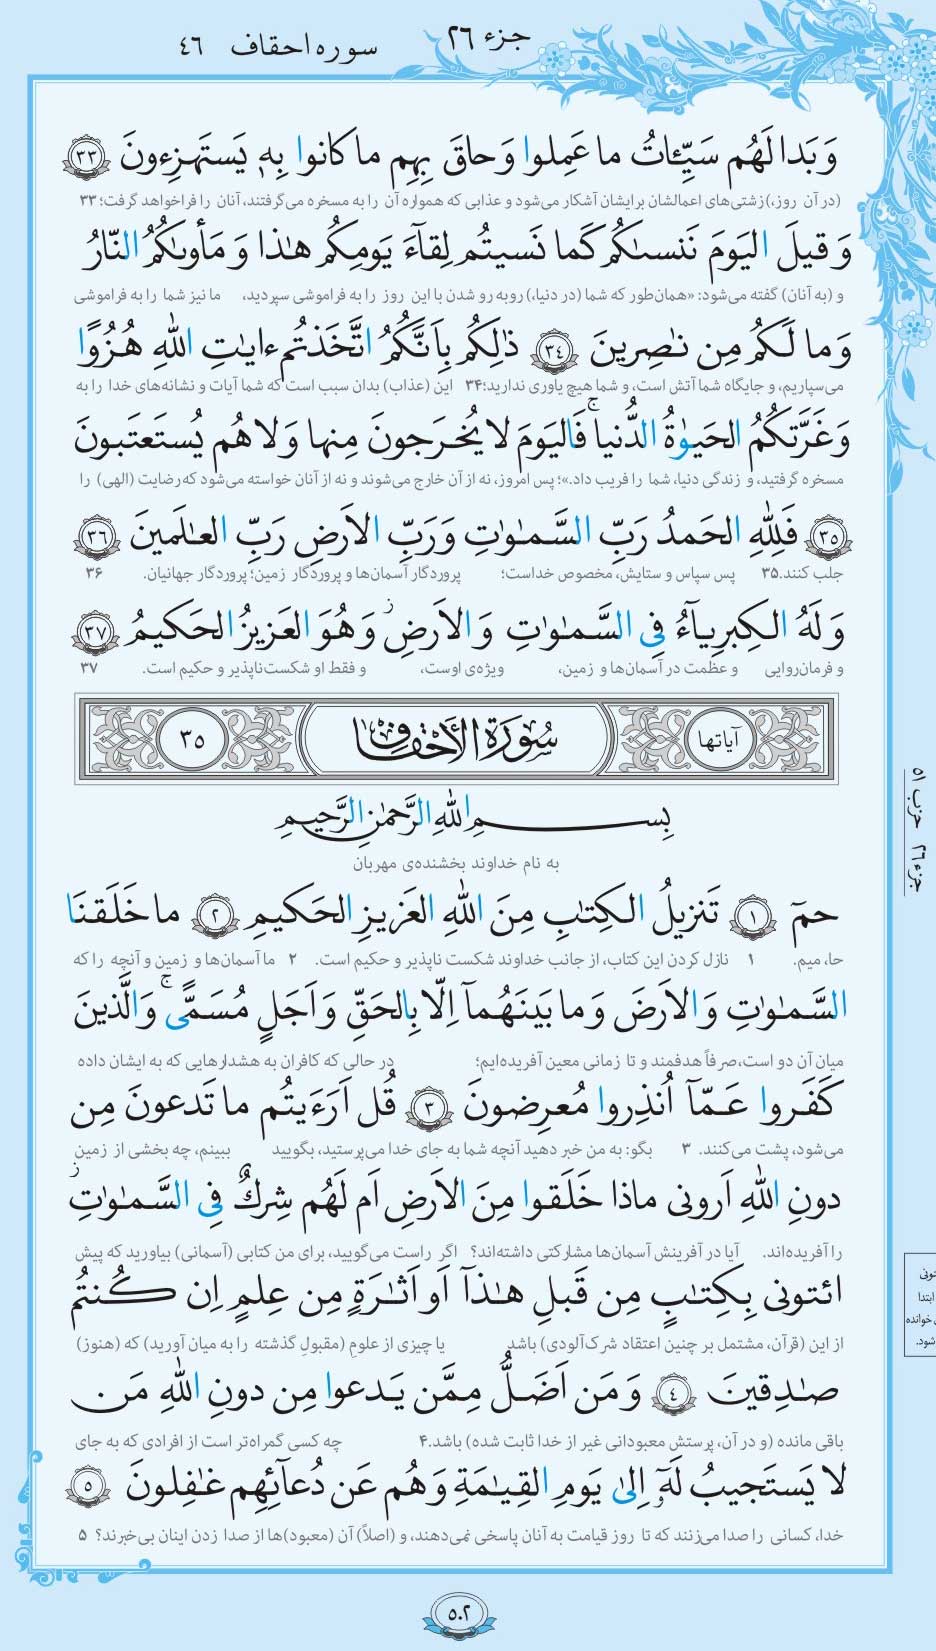 جزء ۲۶
سوره احقاف ۴۶
وَ بَدا لَهُم سَیِّـٔاتُ ما عَمِلوا وَ حاقَ بِهِم ما کانوا بِهٖ یَستَهزِءونَ ﴿۳۳﴾
(در آن روز،) زشتی‌های اعمالشان برایشان آشکار می‌شود و عذابی که همواره آن را به مسخره می‌گرفتند، آنان را فراخواهد گرفت؛ ۳۳
وَ قیلَ الیَومَ نَنسىٰکُم کَما نَسیتُم لِقآءَ یَومِکُم هٰذا وَ مَأوىٰکُمُ النّارُ
و (به آنان) گفته می‌شود: «همان‌طور که شما (در دنیا،) روبه رو شدن با این روز را به فراموشی سپردید، ما نیز شما را به فراموشی
وَ ما لَکُم مِن نٰصِرینَ ﴿۳۴﴾ ذٰلِکُم بِاَنَّکُمُ اتَّخَذتُم ءایٰتِ اللّٰهِ هُزُوًا
می‌سپاریم، و جایگاه شما آتش است، و شما هیچ یاوری ندارید؛ ۳۴ این (عذاب) بدان سبب است که شما آیات و نشانه‌های خدا را به
وَ غَرَّتکُمُ الحَیوٰةُ الدُّنیا ۚ فَالیَومَ لا یُخرَجونَ مِنها وَ لا هُم یُستَعتَبونَ
مسخره گرفتید، و زندگی دنیا، شما را فریب داد.»؛ پس امروز، نه از آن خارج می‌شوند و نه از آنان خواسته می‌شود که رضایت (الهی) را
﴿۳۵﴾ فَلِلّٰهِ الحَمدُ رَبِّ السَّمٰوٰتِ وَ رَبِّ الاَرضِ رَبِّ العٰلَمینَ ﴿۳۶﴾
جلب کنند. ۳۵ پس سپاس و ستایش، مخصوص خداست؛ پروردگار آسمان‌ها و پروردگار زمین؛ پروردگار جهانیان. ۳۶
وَ لَهُ الکِبرِیآءُ فِی السَّمٰوٰتِ وَ الاَرضِ ز وَ هُوَ العَزیزُ الحَکیمُ ﴿۳۷﴾
و فرمان‌روایی و عظمت در آسمان‌ها و زمین، ویژه‌ی اوست، و فقط او شکست‌ناپذیر و حکیم است. ۳۷
آیاتها سُورَةُ الأَحْقَافِ ۳۵
بِسمِ اللّٰهِ الرَّحمٰنِ الرَّحیمِ
به نام خداوند بخشنده‌ی مهربان
حمٓ ﴿۱﴾ تَنزیلُ الکِتٰبِ مِنَ اللّٰهِ العَزیزِ الحَکیمِ ﴿۲﴾ ما خَلَقنَا
حا، میم. ۱ نازل کردن این کتاب، از جانب خداوند شکست ناپذیر و حکیم است. ۲ ما آسمان‌ها و زمین و آنچه را که
السَّمٰوٰتِ وَ الاَرضَ وَ ما بَینَهُمآ اِلّا بِالحَقِّ وَ اَجَلٍ مُسَمًّی ۚ وَ الَّذینَ
میان آن دو است، صرفاً هدفمند و تا زمانی معین آفریده‌ایم؛ در حالی که کافران به هشدارهایی که به ایشان داده
کَفَروا عَمّآ اُنذِروا مُعرِضونَ ﴿۳﴾ قُل اَرَءَیتُم ما تَدعونَ مِن
می‌شود، پشت می‌کنند. ۳ بگو: به من خبر دهید آنچه شما به جای خدا می‌پرستید، بگویید ببینم، چه بخشی از زمین
دونِ اللّٰهِ اَرونی ماذا خَلَقوا مِنَ الاَرضِ اَم لَهُم شِرکٌ فِی السَّمٰوٰتِ ز
را آفریده‌اند. آیا در آفرینش آسمان‌ها مشارکتی داشته‌اند؟ اگر راست می‌گویید، برای من کتابی (آسمانی) بیاورید که پیش
ائتونی بِکِتٰبٍ مِن قَبلِ هٰذآ اَو اَثٰرَةٍ مِن عِلمٍ اِن کُنتُم
از این (قرآن، مشتمل بر چنین اعتقاد شرک‌آلودی) باشد یا چیزی از علومِ (مقبولِ گذشته را به میان آورید) که (هنوز)
صٰدِقینَ ﴿۴﴾ وَ مَن اَضَلُّ مِمَّن یَدعوا مِن دونِ اللّٰهِ مَن
باقی مانده (و در آن، پرستش معبودانی غیر از خدا ثابت شده) باشد. ۴ چه کسی گمراه‌تر است از افرادی که به جای
لا یَستَجیبُ لَهٗٓ اِلىٰ یَومِ القِیٰمَةِ وَ هُم عَن دُعآئِهِم غٰفِلونَ ﴿۵﴾
خدا، کسانی را صدا می‌زنند که تا روز قیامت به آنان پاسخی نمی‌دهند، و (اصلاً) آن (معبود)ها از صدا زدن اینان بی‌خبرند؟ ۵
جزء ۲۶ حزب ۵۱
ابتدا
خوانده
شود.
۵۰۲